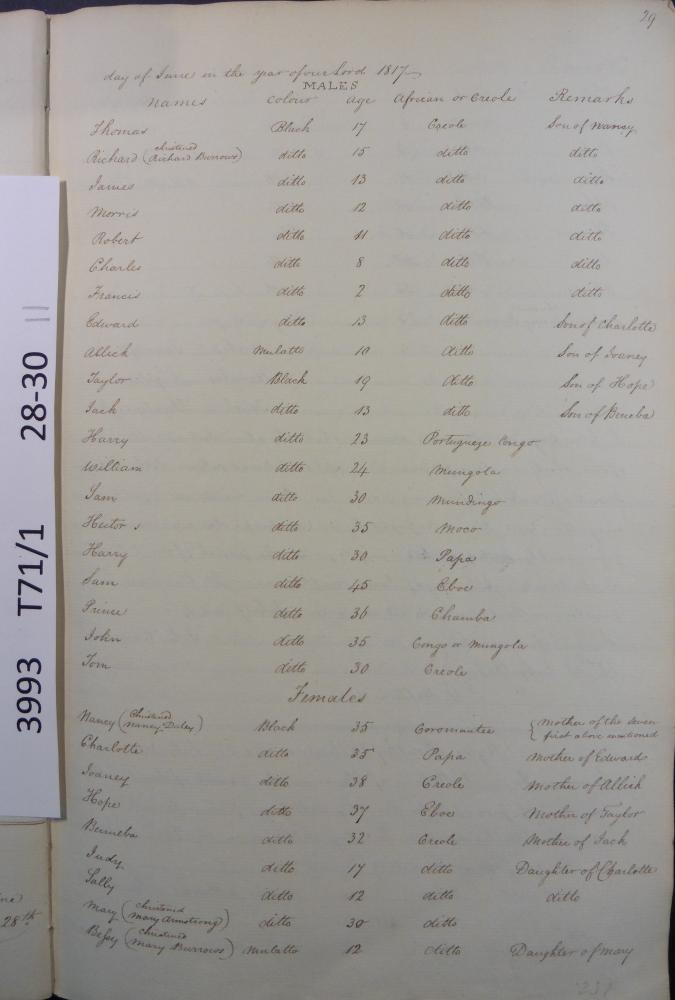 29
day of June in the year of our Lord 1817
MALES
Names Colour Age African or Creole Remarks
Thomas Black 17 Creole Son of Nancy
Richard (christened Richard Burrows) ditto 15 ditto ditto
James ditto 13 ditto ditto
Morris ditto 12 ditto ditto
Robert ditto 11 ditto ditto
Charles ditto 8 ditto ditto
Francis ditto 2 ditto ditto
Edward ditto 13 ditto Son of Charlotte
Allick Mulatto 10 ditto Son of Joaney
Taylor Black 19 ditto Son of Hope
Jack ditto 13 ditto Son of Beneba
Harry ditto 23 Portugueze Congo
William ditto 24 Mungola
Sam ditto 30 Mundingo
Hector ditto 35 Moco
Harry ditto 30 Papa
Sam ditto 45 Eboe
Prince ditto 36 Chamba
John ditto 35 Congo or Mungola
Tom ditto 30 Creole
Females
Nancy (Christened Nancy Daley) Black 35 Coromantee {Mother of the seven first above mentioned
Charlotte ditto 35 Papa Mother of Edward
Joaney ditto 38 Creole Mother of Allick
Hope ditto 37 Eboe Mother of Taylor
Benneba ditto 32 Creole Mother of Jack
Judy ditto 17 ditto Daughter of Charlotte
Sally ditto 12 ditto ditto
Mary (christened Mary Armstrong) ditto 30 ditto
Bessy (christened Mary Burrows) Mulatto 12 ditto Daughter of Mary
28th
3993 T71/1 28-30